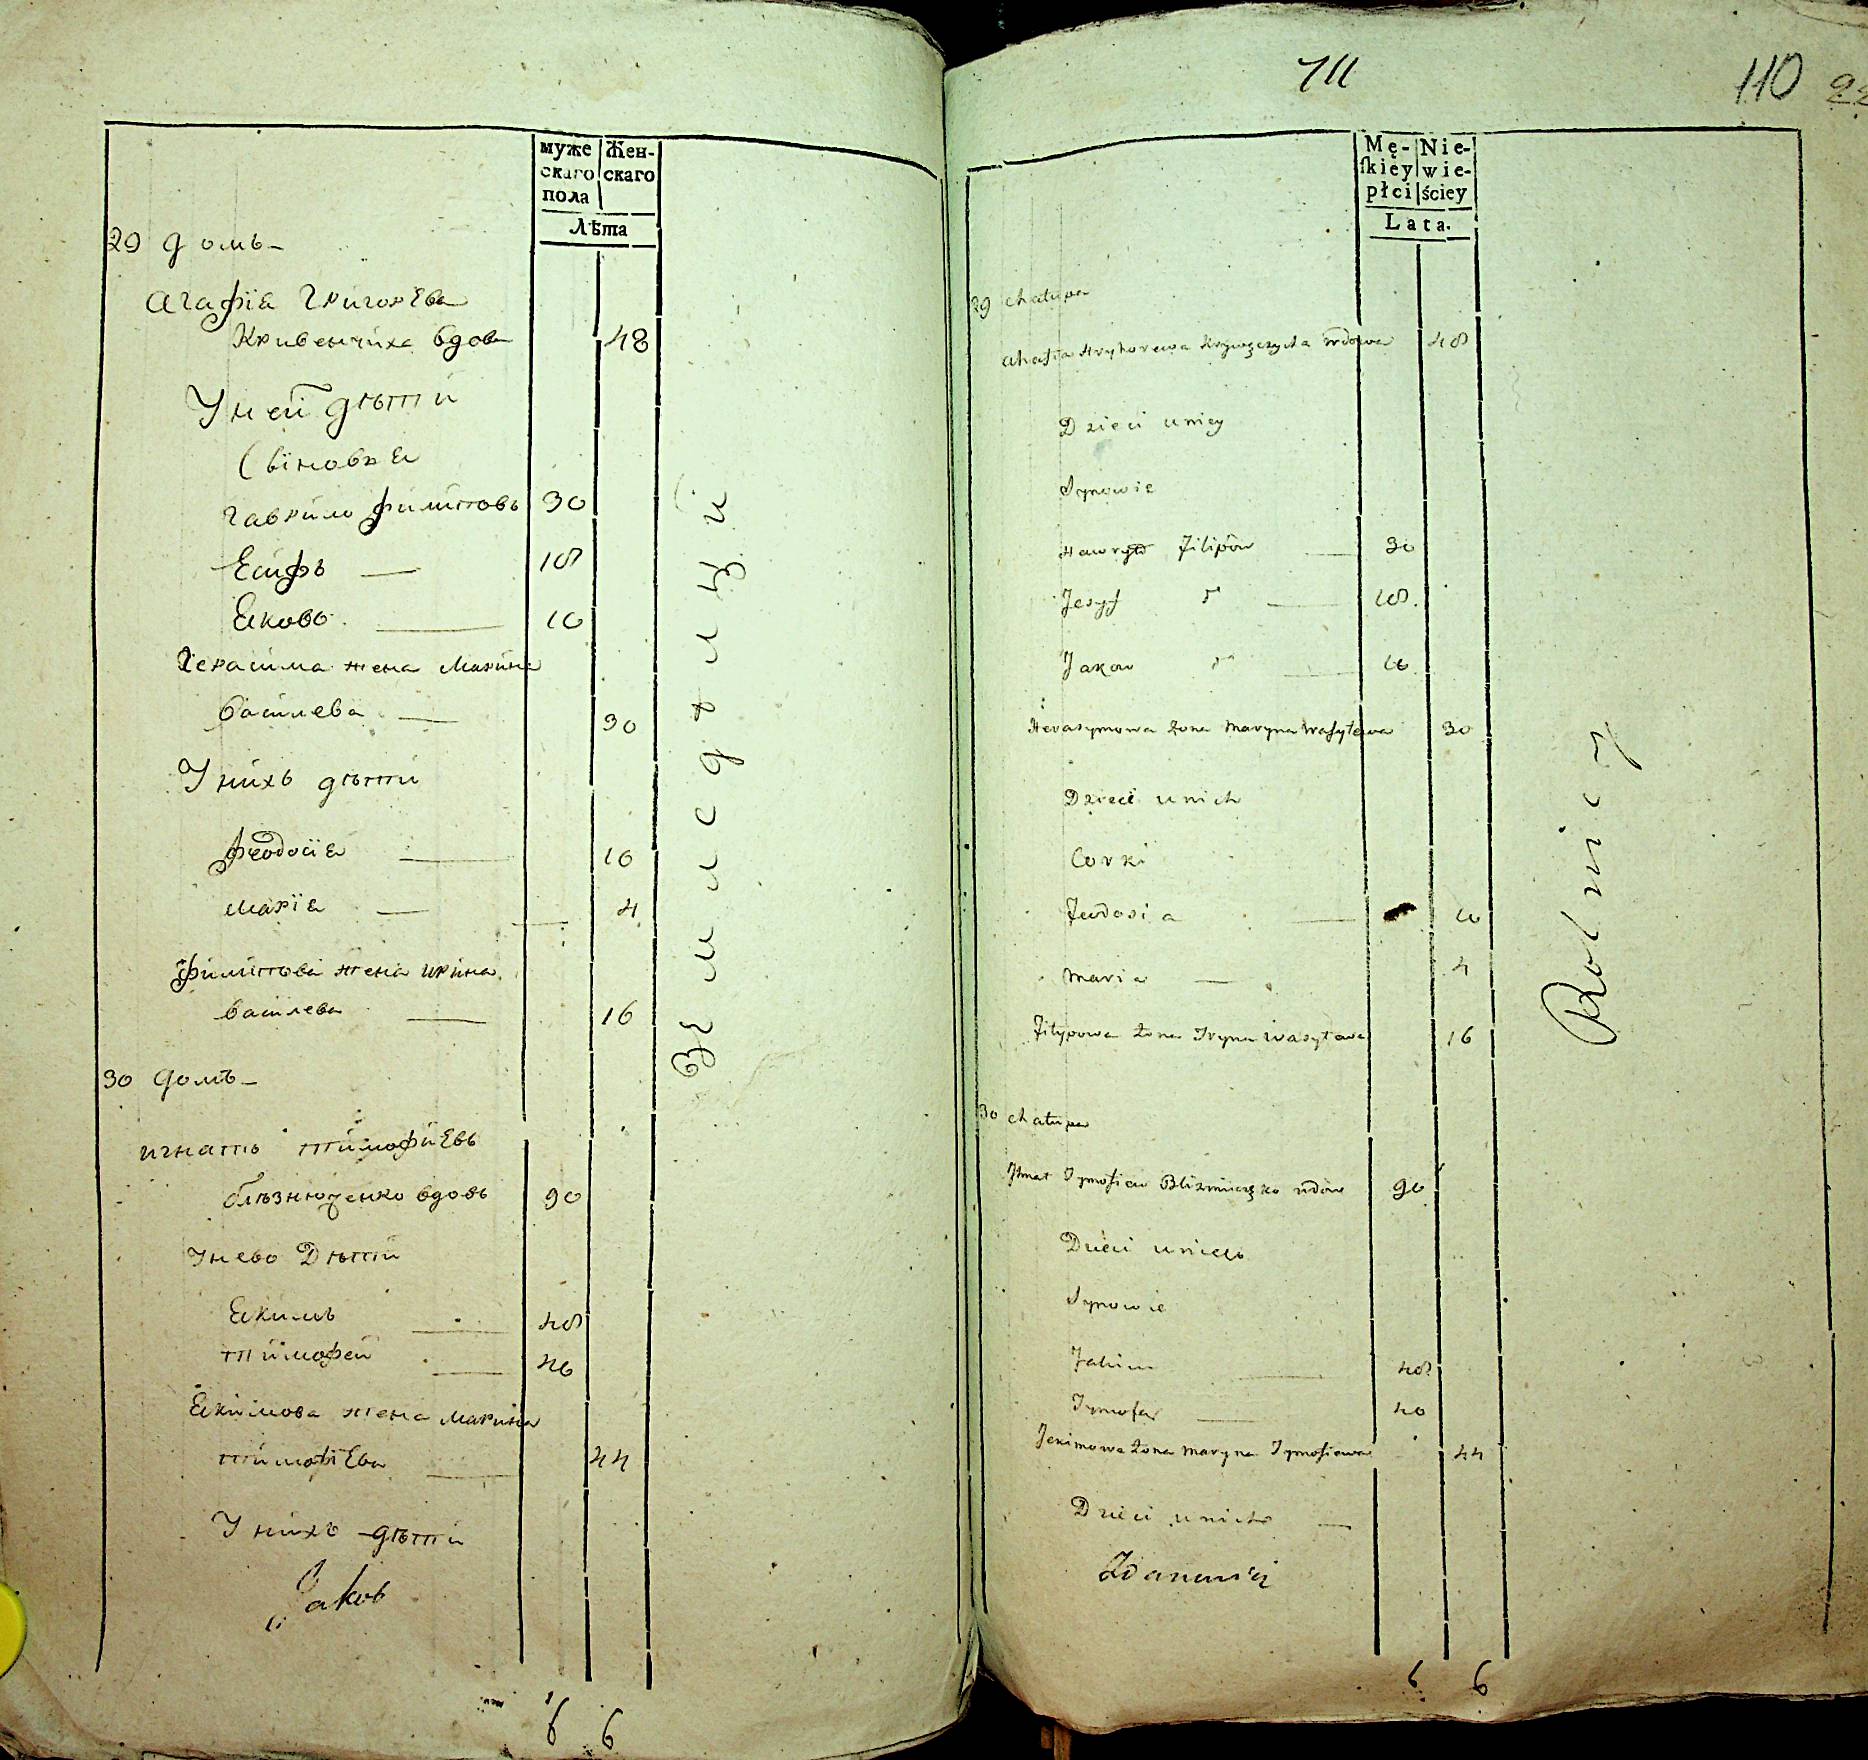 муже
скаго
пола
Жен-
скаго
Лѣта
29 домъ
Агафїа Григорєва
Кривенчиха вдова 48
У ней дѣти
Сїновья
Гаврило Филиповъ 30
Есифъ 18
Яковъ 10
Герасима жена Марина
Василева 30
У нихъ дѣти
Феодосїя 10
Марїя 4
Филипова жена Ирина
Василева 16
30 домъ
Игнатъ Тимофиевъ
близнюченко вдовъ 90
У нево Дѣти
Якимъ 48
Тимофей 46
Якимова жена Марина
Тимофїева 44
У нихъ дѣти
Яков
6 6
Земледѣлци
711
110
Mę-
skiey
płci
Nie-
wie-
ściey
Lata.
29 chałupa
Ahafia Hryhorewa Krywęczycha wdowa 48
Dzieci u niey
Synowie
Hawryło Filipow 30
Jesyf 18
Jakow 10
Herasymowa żona Maryna Wasylewa 30
Dzieci u nich
Corki
Feodosia 10
Maria 4
Filypowa żona Iryna Wasylewa 16
30 chałupa
Ihnat Tymofiew Blizniuczęko wdow 90
Dzieci u niego
Synowie
Jakim 48
Tymofey 40
Jakimowa żona Maryna Tymofiewa 44
Dzieci u nich
6 6
Rolnicy